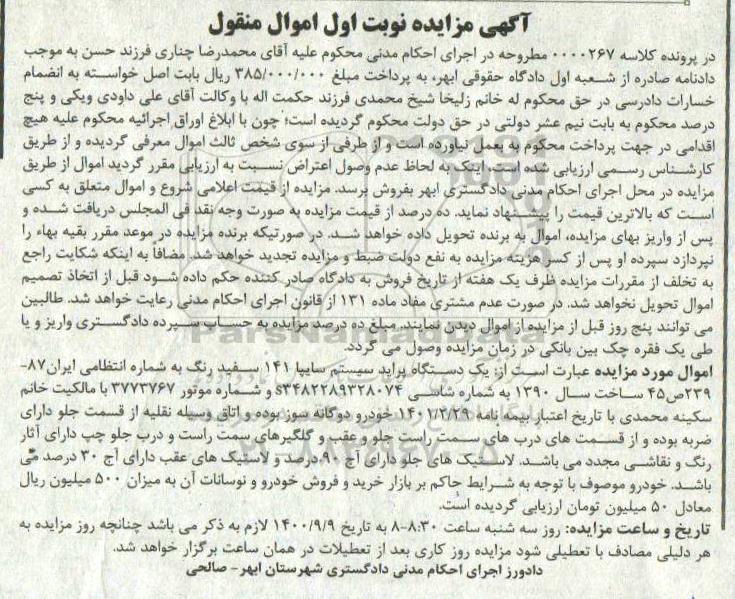 آگهی مزایده نوبت اول اموال منقول
در پرونده کلاسه ۰۰۰۰۲۶۷ مطروحه در اجرای احکام مدنی محکوم علیه آقای محمدرضا چناری فرزند حسن به موجب
دادنامه صادره از شعبه اول دادگاه حقوقی ابهر، به پرداخت مبلغ ۳۸۵/۰۰۰/۰۰۰ ریال بابت اصل خواسته به انضمام
خسارات دادرسی در حق محکوم له خانم زلیخا شیخ محمدی فرزند حکمت اله با وکالت آقای علی داودی ویکی و پنج
درصد محکوم به بابت نیم عشر دولتی در حق دولت محکوم گردیده است؛ چون با ابلاغ اوراق اجرائیه محکوم علیه هیچ
اقدامی در جهت پرداخت محکوم به بعمل نیاورده است و از طرفی از سوی شخص ثالث اموال معرفی گردیده و از طریق
کارشناس رسمی ارزیابی شده است، اینک به لحاظ عدم وصول اعتراض نسبت به ارزیابی مقرر گردید اموال از طریق
مزایده در محل اجرای احکام مدنی دادگستری ابهر بفروش برسد. مزایده از قیمت اعلامی شروع و اموال متعلق به کسی
است که بالاترین قیمت را پیشنهاد نماید. ده درصد از قیمت مزایده به صورت وجه نقد فی المجلس دریافت شده و
پس از واریز بهای مزایده، اموال به برنده تحویل داده خواهد شد. در صورتیکه برنده مزایده در موعد مقرر بقیه بهاء را
نپردازد سپرده او پس از کسر هزینه مزایده به نفع دولت ضبط و مزایده تجدید خواهد شد. مضافاً به اینکه شکایت راجع
به تخلف از مقررات مزایده ظرف یک هفته از تاریخ فروش به دادگاه صادر کننده حکم داده شود قبل از اتخاذ تصمیم
اموال تحویل نخواهد شد. در صورت عدم مشتری مفاد ماده ۱۳۱ از قانون اجرای احکام مدنی رعایت خواهد شد. طالبین
می توانند پنج روز قبل از مزایده از اموال دیدن نمایند. مبلغ ده درصد مزایده به حساب سپرده دادگستری واریز و یا
طی یک فقره چک بین بانکی در زمان مزایده وصول می گردد.
اموال مورد مزایده عبارت است از: یک دستگاه پراید سیستم سایپا ۱۴۱ سفید رنگ به شماره انتظامی ایران۸۷-
۲۳۹ص۴۵ ساخت سال ۱۳۹۰ به شماره شاسی s۳۴۸۲۲۸۹۳۲۸۰۷۴ و شماره موتور ۳۷۷۳۷۶۷ با مالکیت خانم
سکینه محمدی با تاریخ اعتبار بیمه نامه ۱۴۰۱/۲/۲۹ خودرو دوگانه سوز بوده و اتاق وسیله نقلیه از قسمت جلو دارای
ضربه بوده و از قسمت های درب های سمت راست جلو و عقب و گلگیرهای سمت راست و درب جلو چپ دارای آثار
رنگ و نقاشی مجدد می باشد. لاستیک های جلو دارای آج ۹۰ درصد و لاستیک های عقب دارای آج ۳۰ درصد می
باشد. خودرو موصوف با توجه به شرایط حاکم بر بازار خرید و فروش خودرو و نوسانات آن به میزان ۵۰۰ میلیون ریال
معادل ۵۰ میلیون تومان ارزیابی گردیده است.
تاریخ و ساعت مزایده: روز سه شنبه ساعت ۸:۳۰-۸ به تاریخ ۱۴۰۰/۹/۹ لازم به ذکر می باشد چنانچه روز مزایده به
هر دلیلی مصادف با تعطیلی شود مزایده روز کاری بعد از تعطیلات در همان ساعت برگزار خواهد شد.
دادورز اجرای احکام مدنی دادگستری شهرستان ابهر- صالحی
ParsNamadData